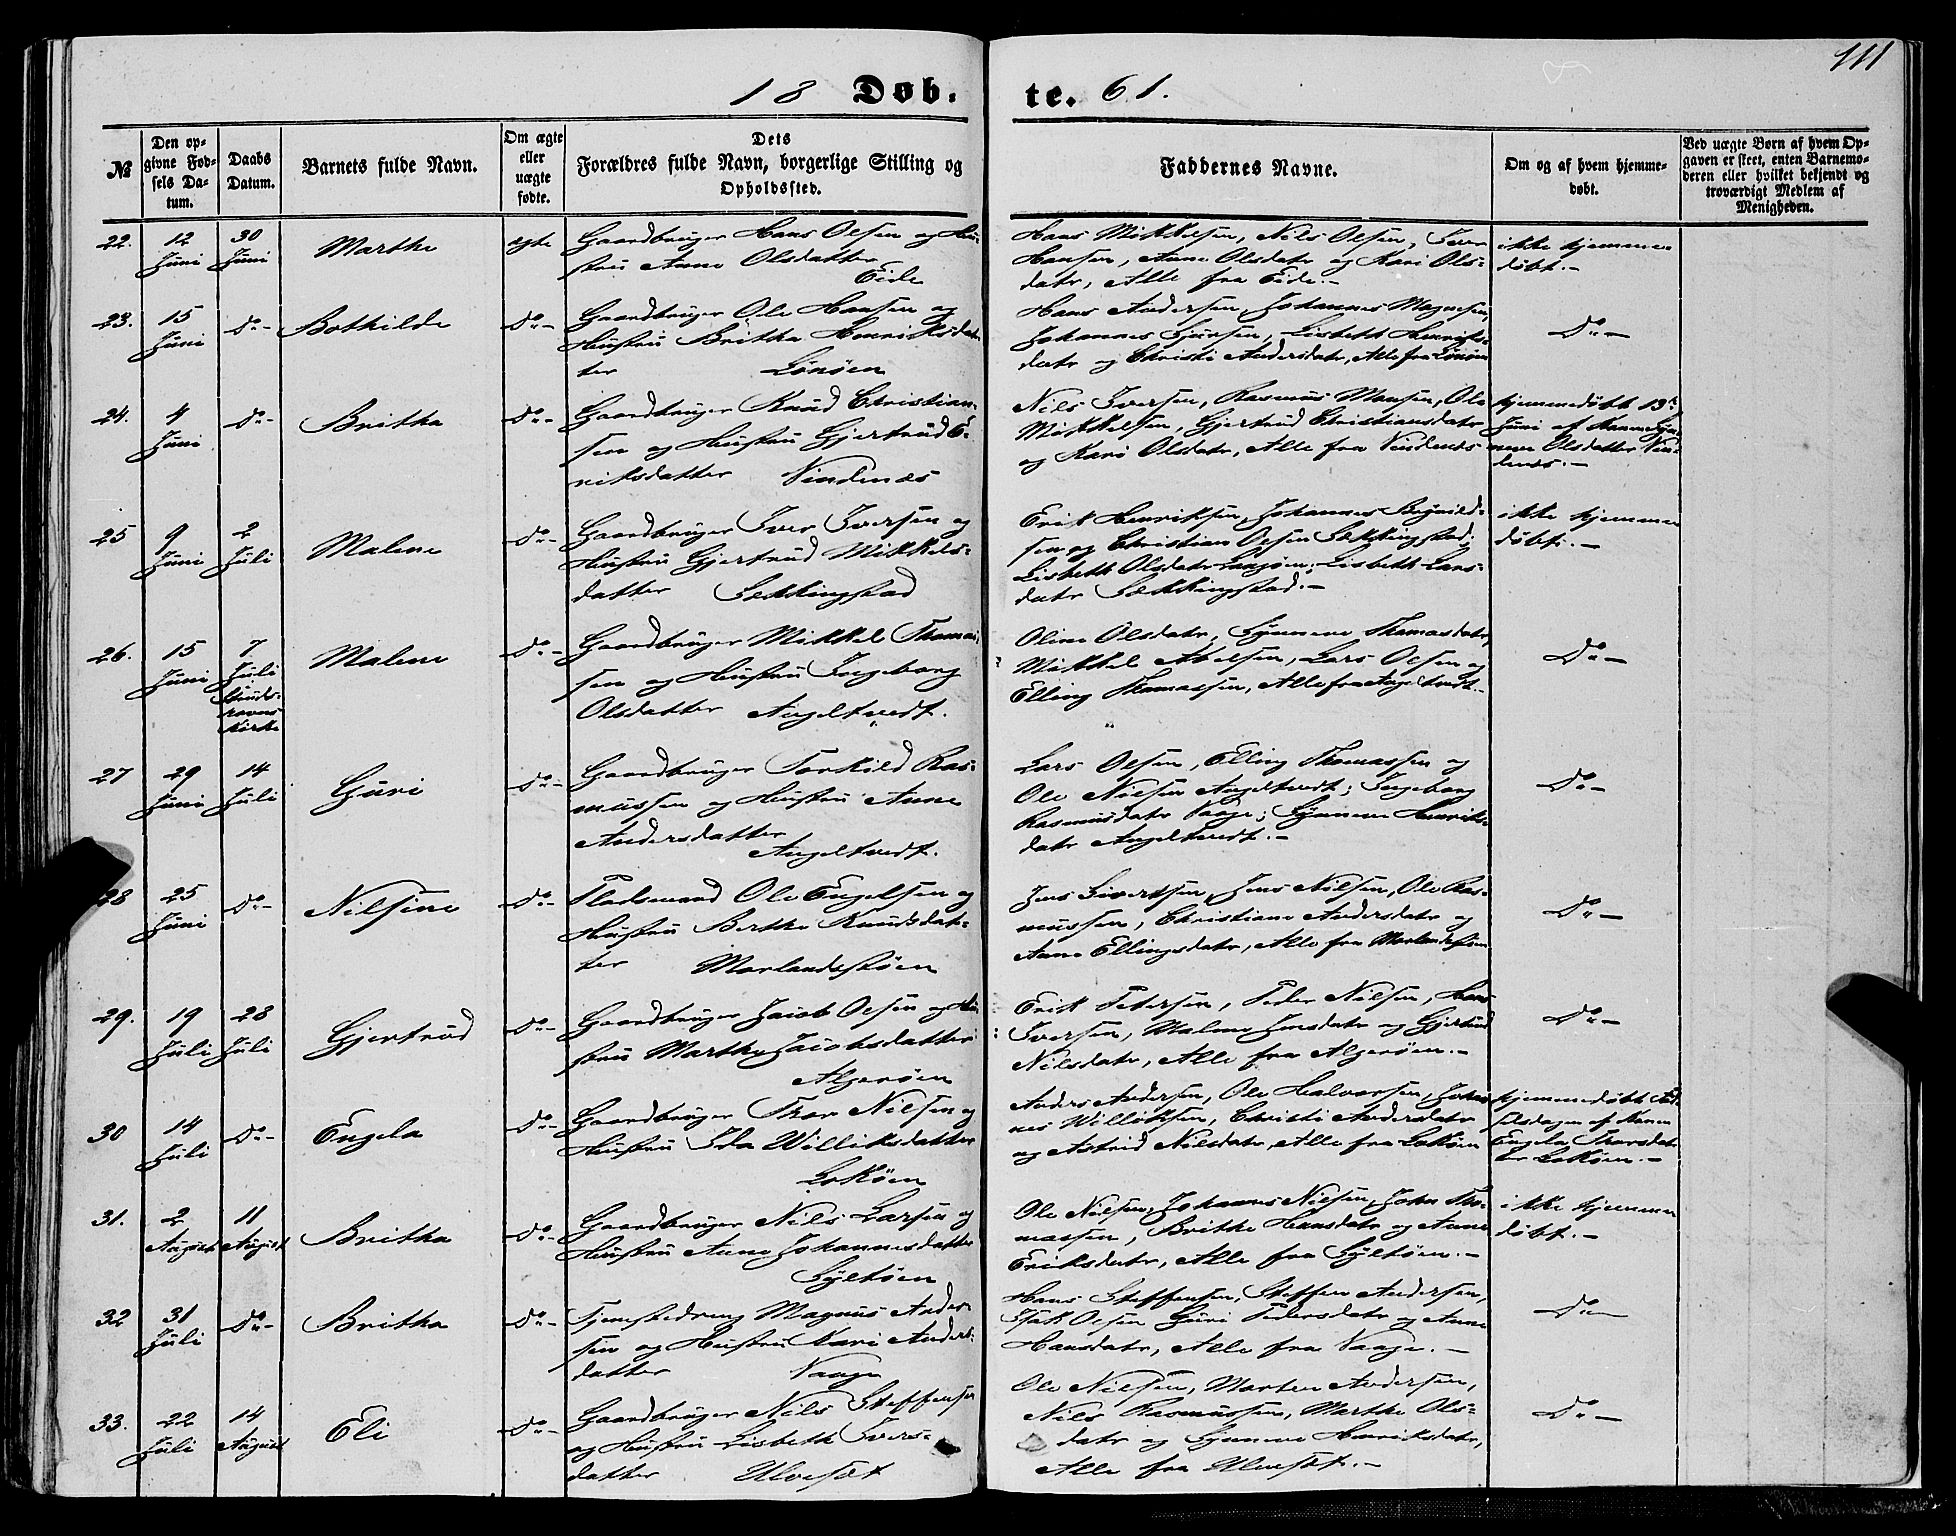 111
18 Døb. te. 61.
№ | Den op-givne Fød-sels Da-tum. | Daabs Datum. | Barnets fulde Navn. | Om ægte eller uægte fødte. | Dets Forældres fulde Navn, borgerlige Stilling og Opholdssted. | Faddernes Navne. | Om og af hvem hjemme-døbt. | Ved uægte Børn af hvem Op-gaven er skeet, enten Barnemo-deren eller hvilket bekjendt og troværdigt Medlem af Menigheden.
22. 12 Juni 30 Juni Marthe ægte
Gaardbruger Hans Olsen og Hu-
stru Anne Olsdatter
Eide
Hans Mikkelsen, Nils Olsen, Iver
Hansen, Anne Olsdatr og Kari Ols-
datr, Alle fra Eide.-
ikke hjemme
døbt.-
23. 15 Juni Do- Bothilde Do-
Gaardbruger Ole Hansen og
Hustru Britha Henriksdat-
ter Lønøen
Hans Andersen, Johannes Magnesen,
Johannes Sjursen, Lisbeth Henriks-
datr og Christi Andersdatr, Alle fra Lønøen
Do-
24. 4 Juni Do- Britha Do-
Gaardbruger Knud Christian-
sen og Hustru Gjertrud E-
riksdatter Vindenæs
Nils Iversen, Rasmus Monsen, Ole
Mikkelsen, Gjertrud Christiansdatr
og Kari Olsdatr, Alle fra Vindenæs
hjemmedøbt 13de
Juni af Konen Syn-
neve Olsdatter Vin-
denæs.-
25 9 Juni 2 Juli Malene Do-
Gaardbruger Iver Iversen og
Hustru Gjertrud Mikkels-
datter Sækkingstad
Erik Henriksen, Johannes
sen og Christian Olsen Sækkingstad;
Lisbeth Olsdatr Langøen; Lisbeth Lars-
datr Sækkingstad.-
ikke hjemme
døbt.-
26. 15 Juni 7 Juli Sunds-havns Kirke Malene Do-
Gaardbruger Mikkel Thomas-
sen og Hustru Ingeborg
Olsdatter Angeltvedt.
Oline Olsdatr, Synneve Thomasdatr,
Mikkel Abelsen, Lars Olsen og
Elling Thomassen, Alle fra Angeltvedt.-
Do-
27 29 Juni 14 Juli Guri Do-
Gaardbruger Torkild Ras-
mussen og Hustru Anne
Andersdatter
Angeltvedt.
Lars Olsen, Elling Thomassen og
Ole Nielsen Angeltvedt; Ingeborg
Rasmusdatr Vaage; Synneve Henriks-
datr Angeltvedt.-
Do-
28 25 Juni Do- Nilsine Do-
Pladsmand Ole Engelsen og
Hustru Berthe Knudsdat-
ter Morlandsstøen
Jens Sivertsen, Jens Nilsen, Ole Ras-
mussen, Christiane Andersdatr og
Anne Ellingsdatr, Alle fra Morlandsstøen
Do-
29. 19 Juli 28 Juli Gjertrud Do-
Gaardbruger Jacob Olsen og Hu-
stru Marthe Jacobsdatter
Algerøen
Erik Petersen, Peder Nilsen, Hans
Iversen, Malene Jonsdatr og Gjertrud
Nilsdatr, Alle fra Algerøen.-
Do-
30 14 Juli Do- Engela Do-
Gaardbruger Thor Nilsen og
Hustru Ida Williksdatter
Lokøen
Anders Andersen, Ole Halvorsen, Johan-
nes Williksen, Christi Andersdatr
og Astrid Nilsdatr, Alle fra Lokøen
hjemmedøbt Fød-
selsdagen af Konen
Engela Thorsdat-
ter Lokøen.-
31. 2 August 11 August Britha Do-
Gaardbruger Nils Larsen og
Hustru Anne Johannesdatter
Syltøen
Ole Nilsen, Johannes Nilsen, John Tho-
massen, Brithe Hansdatr og Anne
Eriksdatr, Alle fra Syltøen.-
ikke hjemme
døbt.-
32 31 Juli Do- Britha Do-
Tjenestedreng Magnus Ander-
sen og Hustru Kari Anders-
datter Vaage
Hans Steffensen, Steffen Andersen,
Isak Olsen Guri Pedersdatr og Anne
Hansdatr, Alle fra Vaage.-
Do-
33. 22 Juli 14 August Eli Do-
Gaardbruger Nils Steffensen
og Hustru Lisbeth Ivers-
datter Ulvesæt
Ole Nilsen, Morten Andersen,
Nils Rasmussen, Marthe Ols-
datr og Synneve Henriksdatr,
Alle fra Ulvesæt.-
Do-